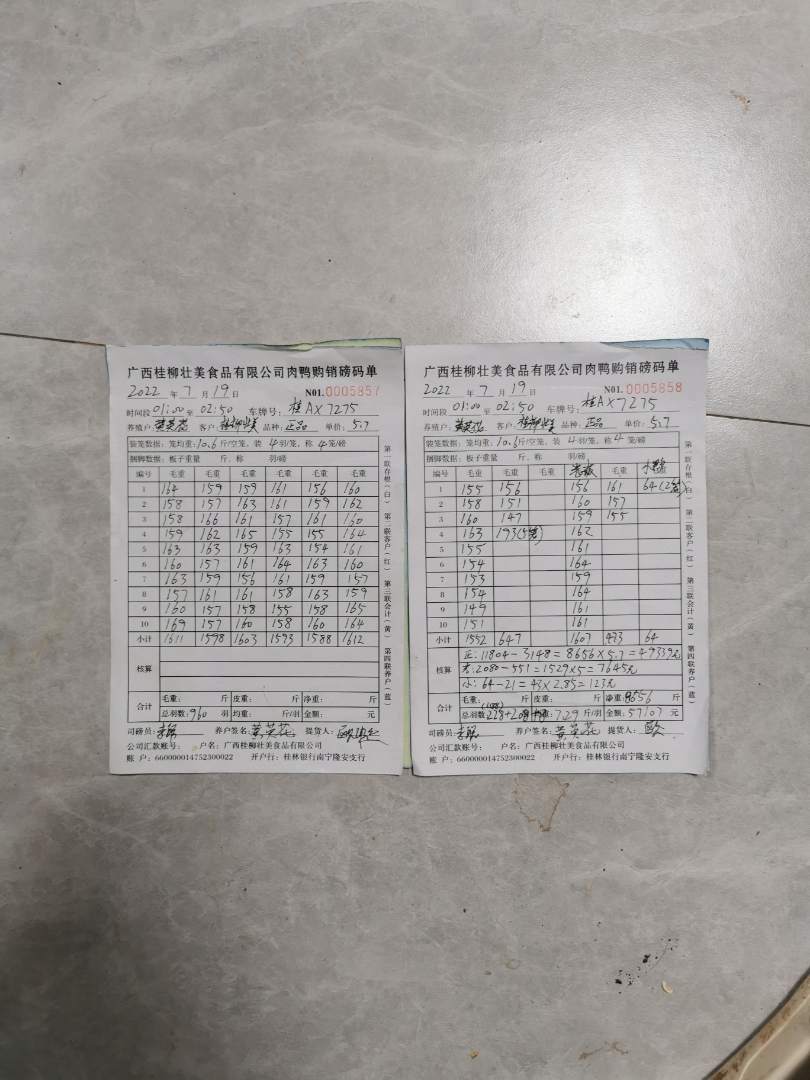 广西桂柳壮美食品有限公司肉鸭购销磅码单
2022 年 7 月 19 日 N01.0005857
时间段 01:00 至 02:50 车牌号: 桂AX7275
养殖户: 黄英花 客户: 桂柳壮美 品种: 正品 单价: 5.7
装笼数据: 笼均重: 10.6 斤/空笼、装 4 羽/笼、称 4 笼/磅
捆脚数据: 板子重量 斤、称 羽/磅
编号 毛重 毛重 毛重 毛重 毛重 毛重
1 164 159 159 161 156 160
2 158 157 163 161 159 162
3 158 166 161 157 161 160
4 159 162 165 155 155 164
5 163 163 159 163 154 161
6 160 157 161 164 163 160
7 163 159 156 161 159 157
8 157 161 161 158 163 159
9 160 157 158 155 158 165
10 169 157 160 158 160 164
小计 1611 1598 1603 1593 1588 1612
核算
合计 毛重: 斤 皮重: 斤 净重: 斤
总羽数: 960 羽 均重: 斤/羽 金额: 元
司磅员: 养户签名: 黄英花 提货人:
公司汇款账号: 户名: 广西桂柳壮美食品有限公司
账 户: 660000014752300022 开户行: 桂林银行南宁隆安支行
第一联存根(白) 第二联客户(红) 第三联会计(黄) 第四联养户(蓝)
广西桂柳壮美食品有限公司肉鸭购销磅码单
2022 年 7 月 19 日 N01.0005858
时间段 01:00 至 02:50 车牌号: 桂AX7275
养殖户: 黄英花 客户: 桂柳壮美 品种: 正品 单价: 5.7
装笼数据: 笼均重: 10.6 斤/空笼、装 4 羽/笼、称 4 笼/磅
捆脚数据: 板子重量 斤、称 羽/磅
编号 毛重 毛重 毛重 毛重
1 155 156 156 161 64(2笼)
2 158 151 160 157
3 160 147 159 155
4 163 193(5笼) 162
5 155 161
6 154 164
7 153 159
8 154 164
9 149 161
10 151 161
小计 1552 647 1607 473 64
核算 正: 11804-3148=8656×5.7=49339元
2080-551=1529×5=7645元
小: 64-21=43×2.85=123元
合计 毛重: 斤 皮重: 斤 净重: 8656 斤
总羽数: 均重: 7.29 斤/羽 金额: 57107 元
司磅员: 养户签名: 黄英花 提货人:
公司汇款账号: 户名: 广西桂柳壮美食品有限公司
账 户: 660000014752300022 开户行: 桂林银行南宁隆安支行
第一联存根(白) 第二联客户(红) 第三联会计(黄) 第四联养户(蓝)